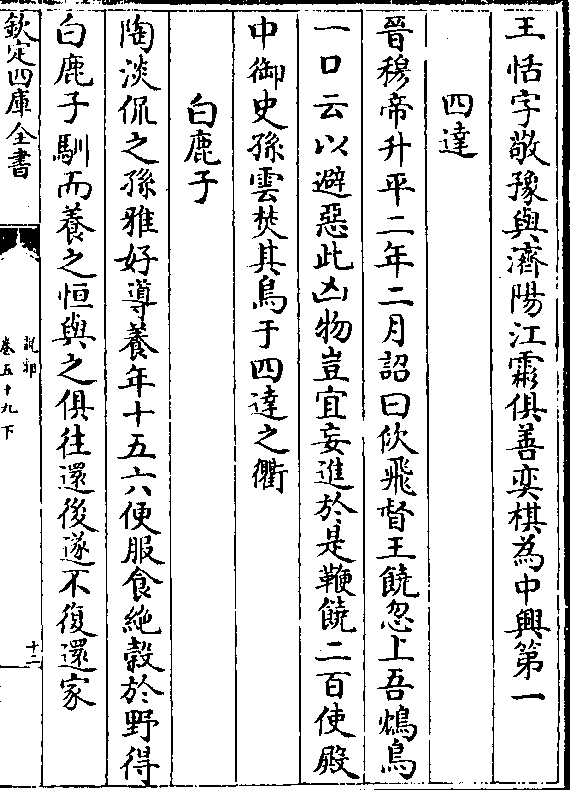 王恬字敬豫與濟陽江霖俱善奕棋為中興第一
四達
晉穆帝升平二年二月詔曰佽飛督王饒忽上吾鴆鳥
一口云以避惡此凶物豈宜妄進於是鞭饒二百使殿
中御史孫雲焚其鳥于四達之衢
白鹿子
陶淡侃之孫雅好導養年十五六便服食絶糓於野得
白鹿子馴而養之恒與之俱往還後遂不復還家
欽定四庫全書
說郛
卷五十九下
十二